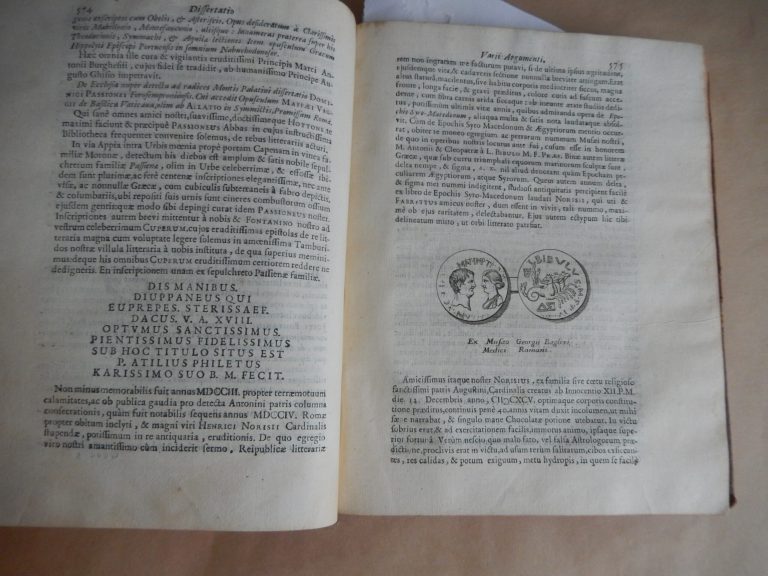 574 Dissertatio
gene inscripti cum Obelis, & Asteriscis. Opus desideratum à Clarissimis
viris Mabillonio, Montefauconio, aliisque: innumeras praeterea super his
Theodotionis, Symmachi, & Aquilæ lectiones: Item opusculum Græcum
Hippolyti Episcopi Portuensis in somnium Nabuchodonosor.
Hæc omnia iste cura & vigilantia eruditissimi Principis Marci Antonii
Burghesii, cujus fidei se tradidit, ab humanissimo Principe Augusto
Ghisio impetravit.
De Ecclesia nuper detecta ad radices Montis Palatini dissertatio DOMINICI
PASSIONEI Forosemproniensis. Cui accedit Opusculum MAFFÆI VEGII
de Basilica Vaticana, olim ab ALLATIO in Symmictis, Promissum Romæ.
Qui sanè omnes amici nostri, suavissime, doctissimeque HOTTONE te
maximi faciunt & præcipuè PASSIONEUS Abbas in cujus instructissima
Bibliotheca frequenter convenire solemus, de rebus litterariis acturi.
In via Appia intra Urbis mœnia propè portam Capenam in vinea familiæ
Moronæ, detectum his diebus est amplum & satis nobile sepulchretum
familiæ Passienæ, olim in Urbe celeberrimæ, & effossæ ibidem
sunt plurimæ, ac ferè centenæ inscriptiones elegantissimæ, nec ante
visæ, ac nonnullæ Græcæ, cum cubiculis subterraneis à fabro depictis,
& columbariis, ubi repositi suis urnis sunt cineres combustorum ossium
ejusdem gentis: quæ modo sibi depingi curat idem PASSIONEUS noster.
Inscriptiones autem brevi mittentur à nobis & FONTANINO nostro ad
vestrum celeberrimum CUPERUM, cujus eruditissimas epistolas de re litteraria
magna cum voluptate legere solemus in amœnissima Tamburi
nostræ villula litteraria à nobis instituta, de qua superius meminimus:
deque his omnibus CUPERUM eruditissimum certiorem reddere ne
dedigneris. En inscriptionem unam ex sepulchreto Passienæ familiæ.
DIS MANIBUS.
DIUPPANEUS QUI
EUPREPES. STERISSAEF.
DACUS. V. A. XVIII.
OPTVMUS SANCTISSIMUS.
PIENTISSIMUS FIDELISSIMUS
SUB HOC TITULO SITUS EST
P. ATILIUS PHILETUS
KARISSIMO SUO B. M. FECIT.
Non minus memorabilis fuit annus MDCCIII. propter terræmotuum
calamitates, ac ob publica gaudia pro detecta Antonini patris columna
consecrationis, quàm fuit notabilis sequens annus MDCCIV. Romæ
propter obitum inclyti, & magni viri HENRICI NORISII Cardinalis
stupendæ, potissimum in re antiquaria, eruditionis. De quo egregio
viro nostri amantissimo cùm inciderit sermo, Reipublicæ litterariæ
Varii Argumenti. 575
rem non ingratam me facturum putavi, si de ultima ipsius ægritudine,
ejusdemque vita, & cadaveris sectione nonnulla breviter attingam. Erat
altus staturâ, macilentus, sive habitu corporis mediocriter siccus, magna
fronte, longa facie, & gravi præditus, colore cutis ad fuscum accedente;
cum fibra carnis arida siccaque: ob ineunte ætate studiis deditus,
potissimum ultima vitæ annis, quibus admiranda opera de Epochis
Syro Macedonum, aliaque multa & satis nota laudatque absolvit.
Cum de Epochis Syro Macedonum & Ægyptiorum mentio occurrat,
obiter te moneo egregium ac perrarum nummum Musei nostri
in operibus nostris locum habiturum, in quo protomæ conspiciuntur
M. Antonii & Cleopatræ à L. BIBULO M. F. PRÆF. Binæ autem litteræ
Græcæ, quæ sub curru triumphali equorum marinorum sculptæ sunt,
delta nempe, & sigma, Δ. Σ. nil aliud denotant quàm Epocham peculiarem
Ægyptiorum, atque Syrorum. Quem autem annum delta,
& sigma mei nummi indigitent, studiosi antiquitatis percipient facilè
ex libro de Epochis Syro-Macedonum laudati NORISII, qui uti &
FABRETTUS amicus noster, dum essent in vivis, tali nummo, maximè
ob ejus raritatem, delectabantur. Ejus autem ectypum hic tibi
delineatum mitto, ut orbi litterato patefiat.
Ex Museo Georgii Baglivi
Medici Romani.
Amicissimus itaque noster NORISIUS, ex familia sive cœtu religioso
sanctissimi patris Augustini, Cardinalis creatus ab Innocentio XII. P. M.
die. 12. Decembris anno, CIƆIƆCXCV. optimaque corporis constitutione
præditus, continuit penè 40. annis vitam duxit incolumem, ut mihi
ipse narrabat, & singulo mane Chocolate potione utebatur. In victu
sobrius erat, & ad exercitationem facilis, immoto animo, ipsaque superior
fortuna: à Veram nescio, quo malo fato, vel falsâ Astrologorum prædictione,
proclivis erat in victu, ad usum rerum salitarum, cibos calefacientes,
res calidas, & potum exiguum, metu hydropis, in quem se facile